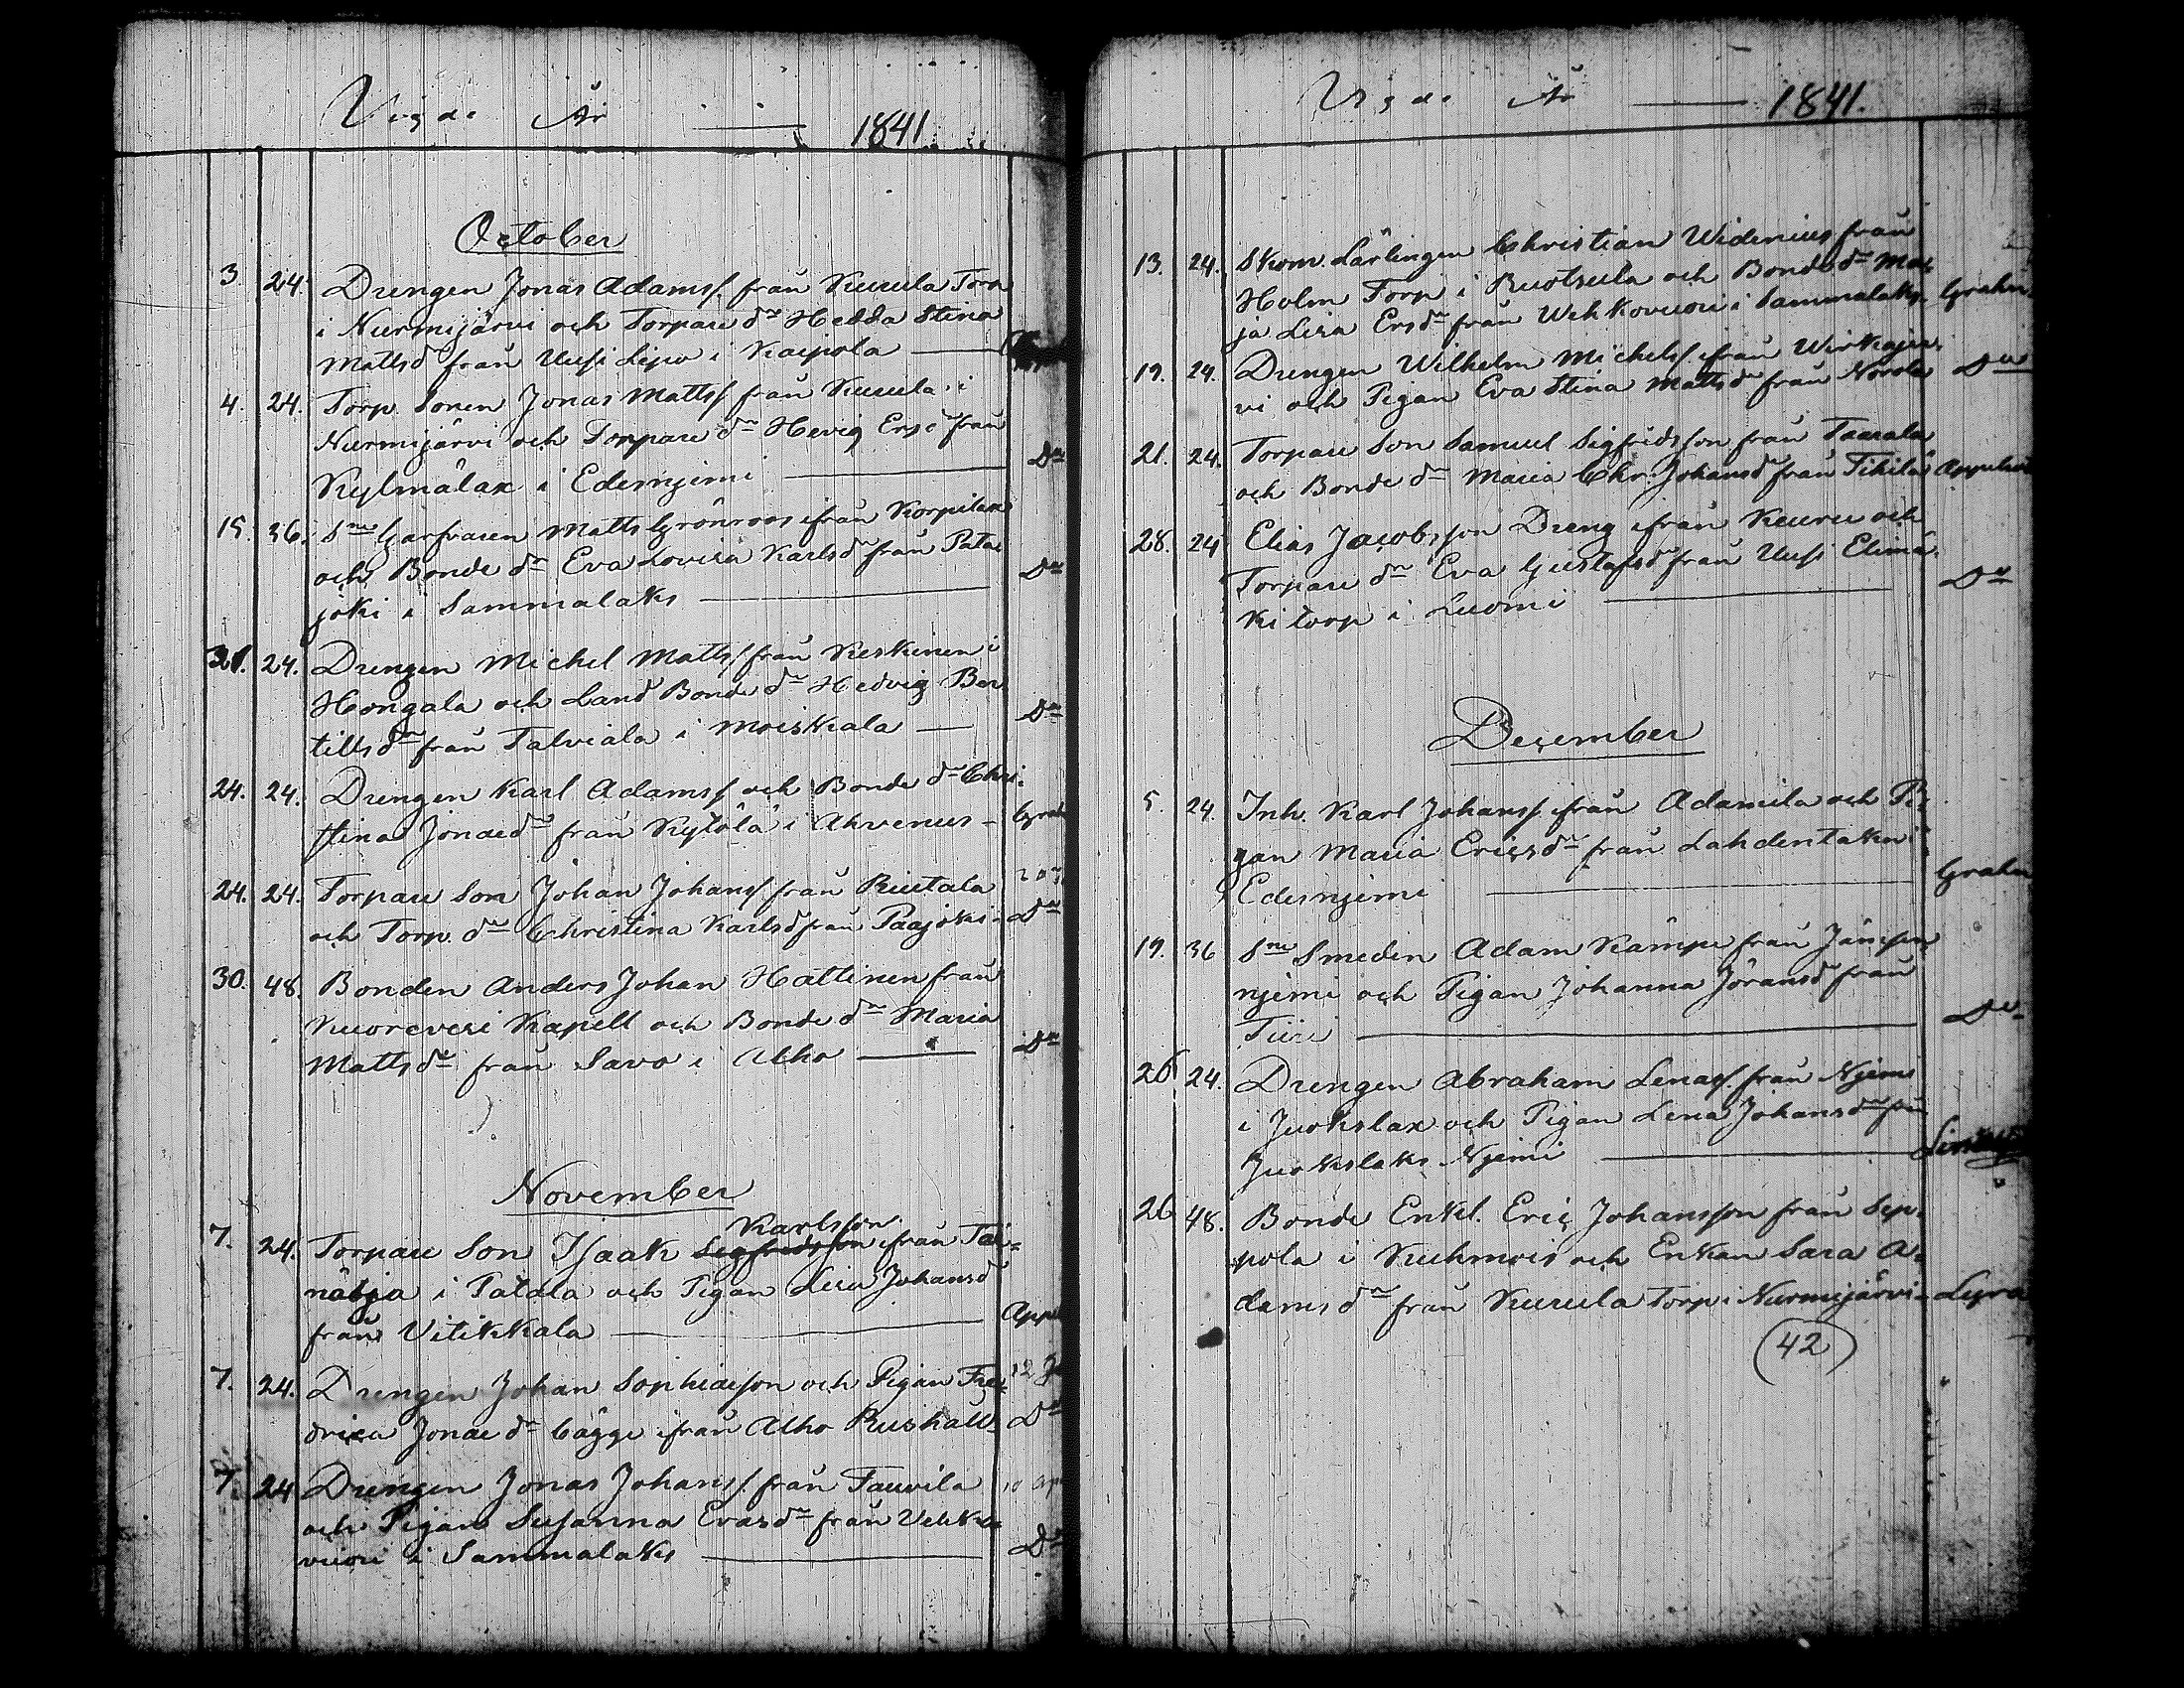 Vigde År — 1841
October
3. 24. Drengen Jonas Adams/. från Kuuula Torp
i Nurmijärvi och Torpare dr Hedda Stina
Mattsdr från Uusi Lipo i Kaipola —
4. 24. Torp. Sonen Jonas Matts/ från Kuuula i
Nurmijärvi och Torpare dr Hevig Ersdr från
Kylmälax i Edesnjemi — Do
15. 36. Sne Garfvaren Matts Grönroos ifrån Korpilax
och Bonde dr Eva Lovisa Karlsdr från Pata
joki i Sammalaks — Do
31. 24. Drengen Michel Matts/ från Keskinen i
Hongala och Land Bonde dr Hedvig Ber
tillsdr från Talviala i Moiskala — Do
24. 24. Drengen Karl Adams/ och Bonde dr Chri-
stina Jonaedr från Kytölä i Ahvenus - Grah
24. 24. Torpare Son Johan Johans/ från Riutala
och Torp. dr Christina Karlsdr från Paajoki - Do
30. 48. Bonden Anders Johan Hattinen från
Kuorevesi Kapell och Bonde dr Maria
Mattsdr från Savo i Alho — Do
November
Karlsson
7. 24. Torpare Son Isaak Sigfredsson ifrån Tai-
nätja i Patala och Pigan Lisa Johansdr
från Vitikkala — App
7. 24. Drengen Johan Sophiaeson och Pigan Fre- 12
drica Jonae dr Cägge ifrån Alho Rushåll. Do
7. 24 Drengen Jonas Johans/. från Tauvila 10 Ap
och Pigan Susanna Evasdr från Vehko
vuori i Sammalaks — Do
Vigde År — 1841.
13. 24. Skom. Lärlingen Christian Widenius från
Holm Torp i Ruotsula och Bonde dr Mar-
ja Lisa Ersdr från Wehkovuori i Sammalaks. Grahn.
19. 24. Drengen Wilhelm Michels/ ifrån Wirkajär-
vi och Pigan Eva Stina Mattsdr från Norola Do
21. 24. Torpare Son Samuel Sigfridsson från Taurala
och Bonde dr Maria Chr. Johansdr från Tihilä
28. 24 Elias Jacobsson Dreng ifrån Keuru och
Torpare dr Eva Gustafsdr från Uusi Elimä
ki torp i Luomi — Do
December
5. 24. Inh. Karl Johans/. ifrån Adamila och Pi-
gan Maria Ericsdr från Lahdentaka i
Edesnjemi — Grahn
19. 36 Sne Smeden Adam Kämpe från Jämsän
njemi och Pigan Johanna Jöransdr från
Tiiri — Do
26 24. Drengen Abraham Lenas/. från Njemi
i Juokslax och Pigan Lena Johansdr från
Juokslaks Njemi —
26 48. Bonde Enkl. Eric Johansson från Sep-
pola i Kuhmois och Enkan Sara A-
damsdr från Kuuula torp i Nurmijärvi - Lyra
(42)